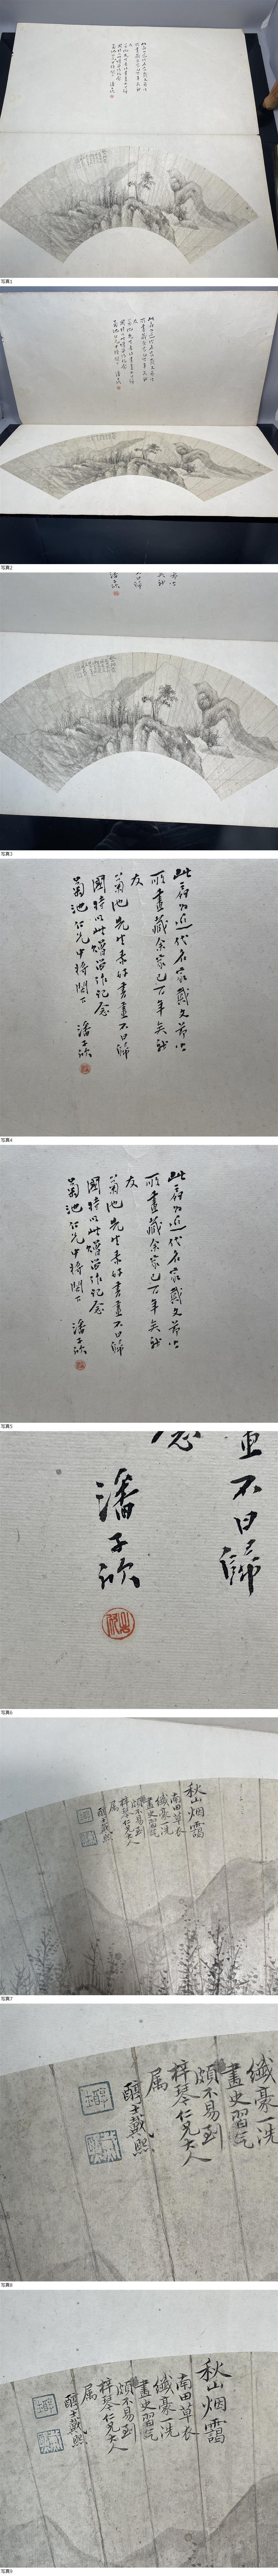 写真1
写真2
写真3
此扇為近代名家戴文節公
所畫藏余家已百年矣我
友
菊池先生素好書畫不日歸
國特以此贈留作記念
菊池仁兄中將閣下
潘子欣
写真4
此扇為近代名家戴文節公
所畫藏余家已百年矣我
友
菊池先生素好書畫不日歸
國特以此贈留作記念
菊池仁兄中將閣下
潘子欣
写真5
不日歸
念
潘子欣
写真6
秋山烟靄
南田草衣
纖豪一洗
畫史習气
頗不易到
梓琴仁兄大人
属
醇士戴熙
写真7
纖豪一洗
畫史習气
頗不易到
梓琴仁兄大人
属
醇士戴熙
写真8
秋山烟靄
南田草衣
纖豪一洗
畫史習气
頗不易到
梓琴仁兄大人
属
醇士戴熙
写真9